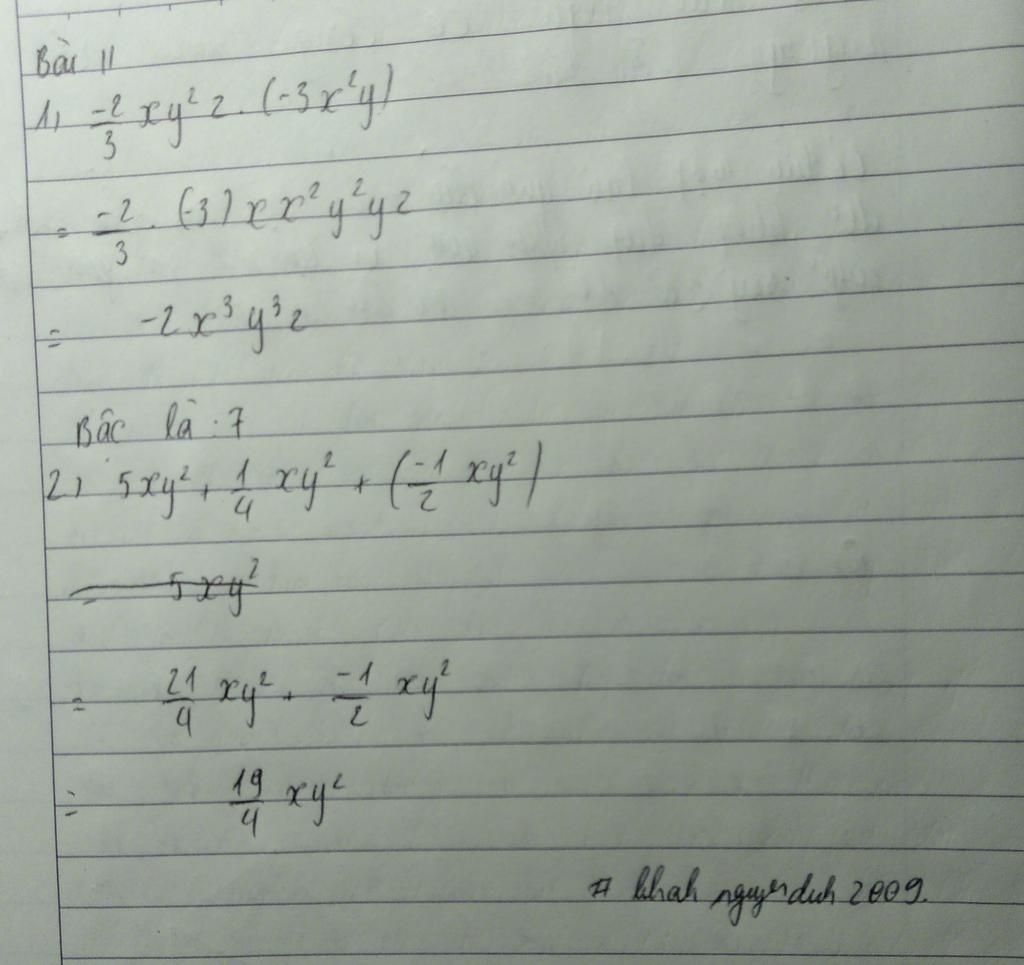 Bài 11
1, -2/3 xy² z . (-3x²y)
= -2/3 . (-3) x x² y² y z
= -2 x³ y³ z
Bậc là : 7
2) 5xy² + 1/4 xy² + (-1/2 xy²)
= 5xy²
= 21/4 xy² + -1/2 xy²
= 19/4 xy²
# 2009.